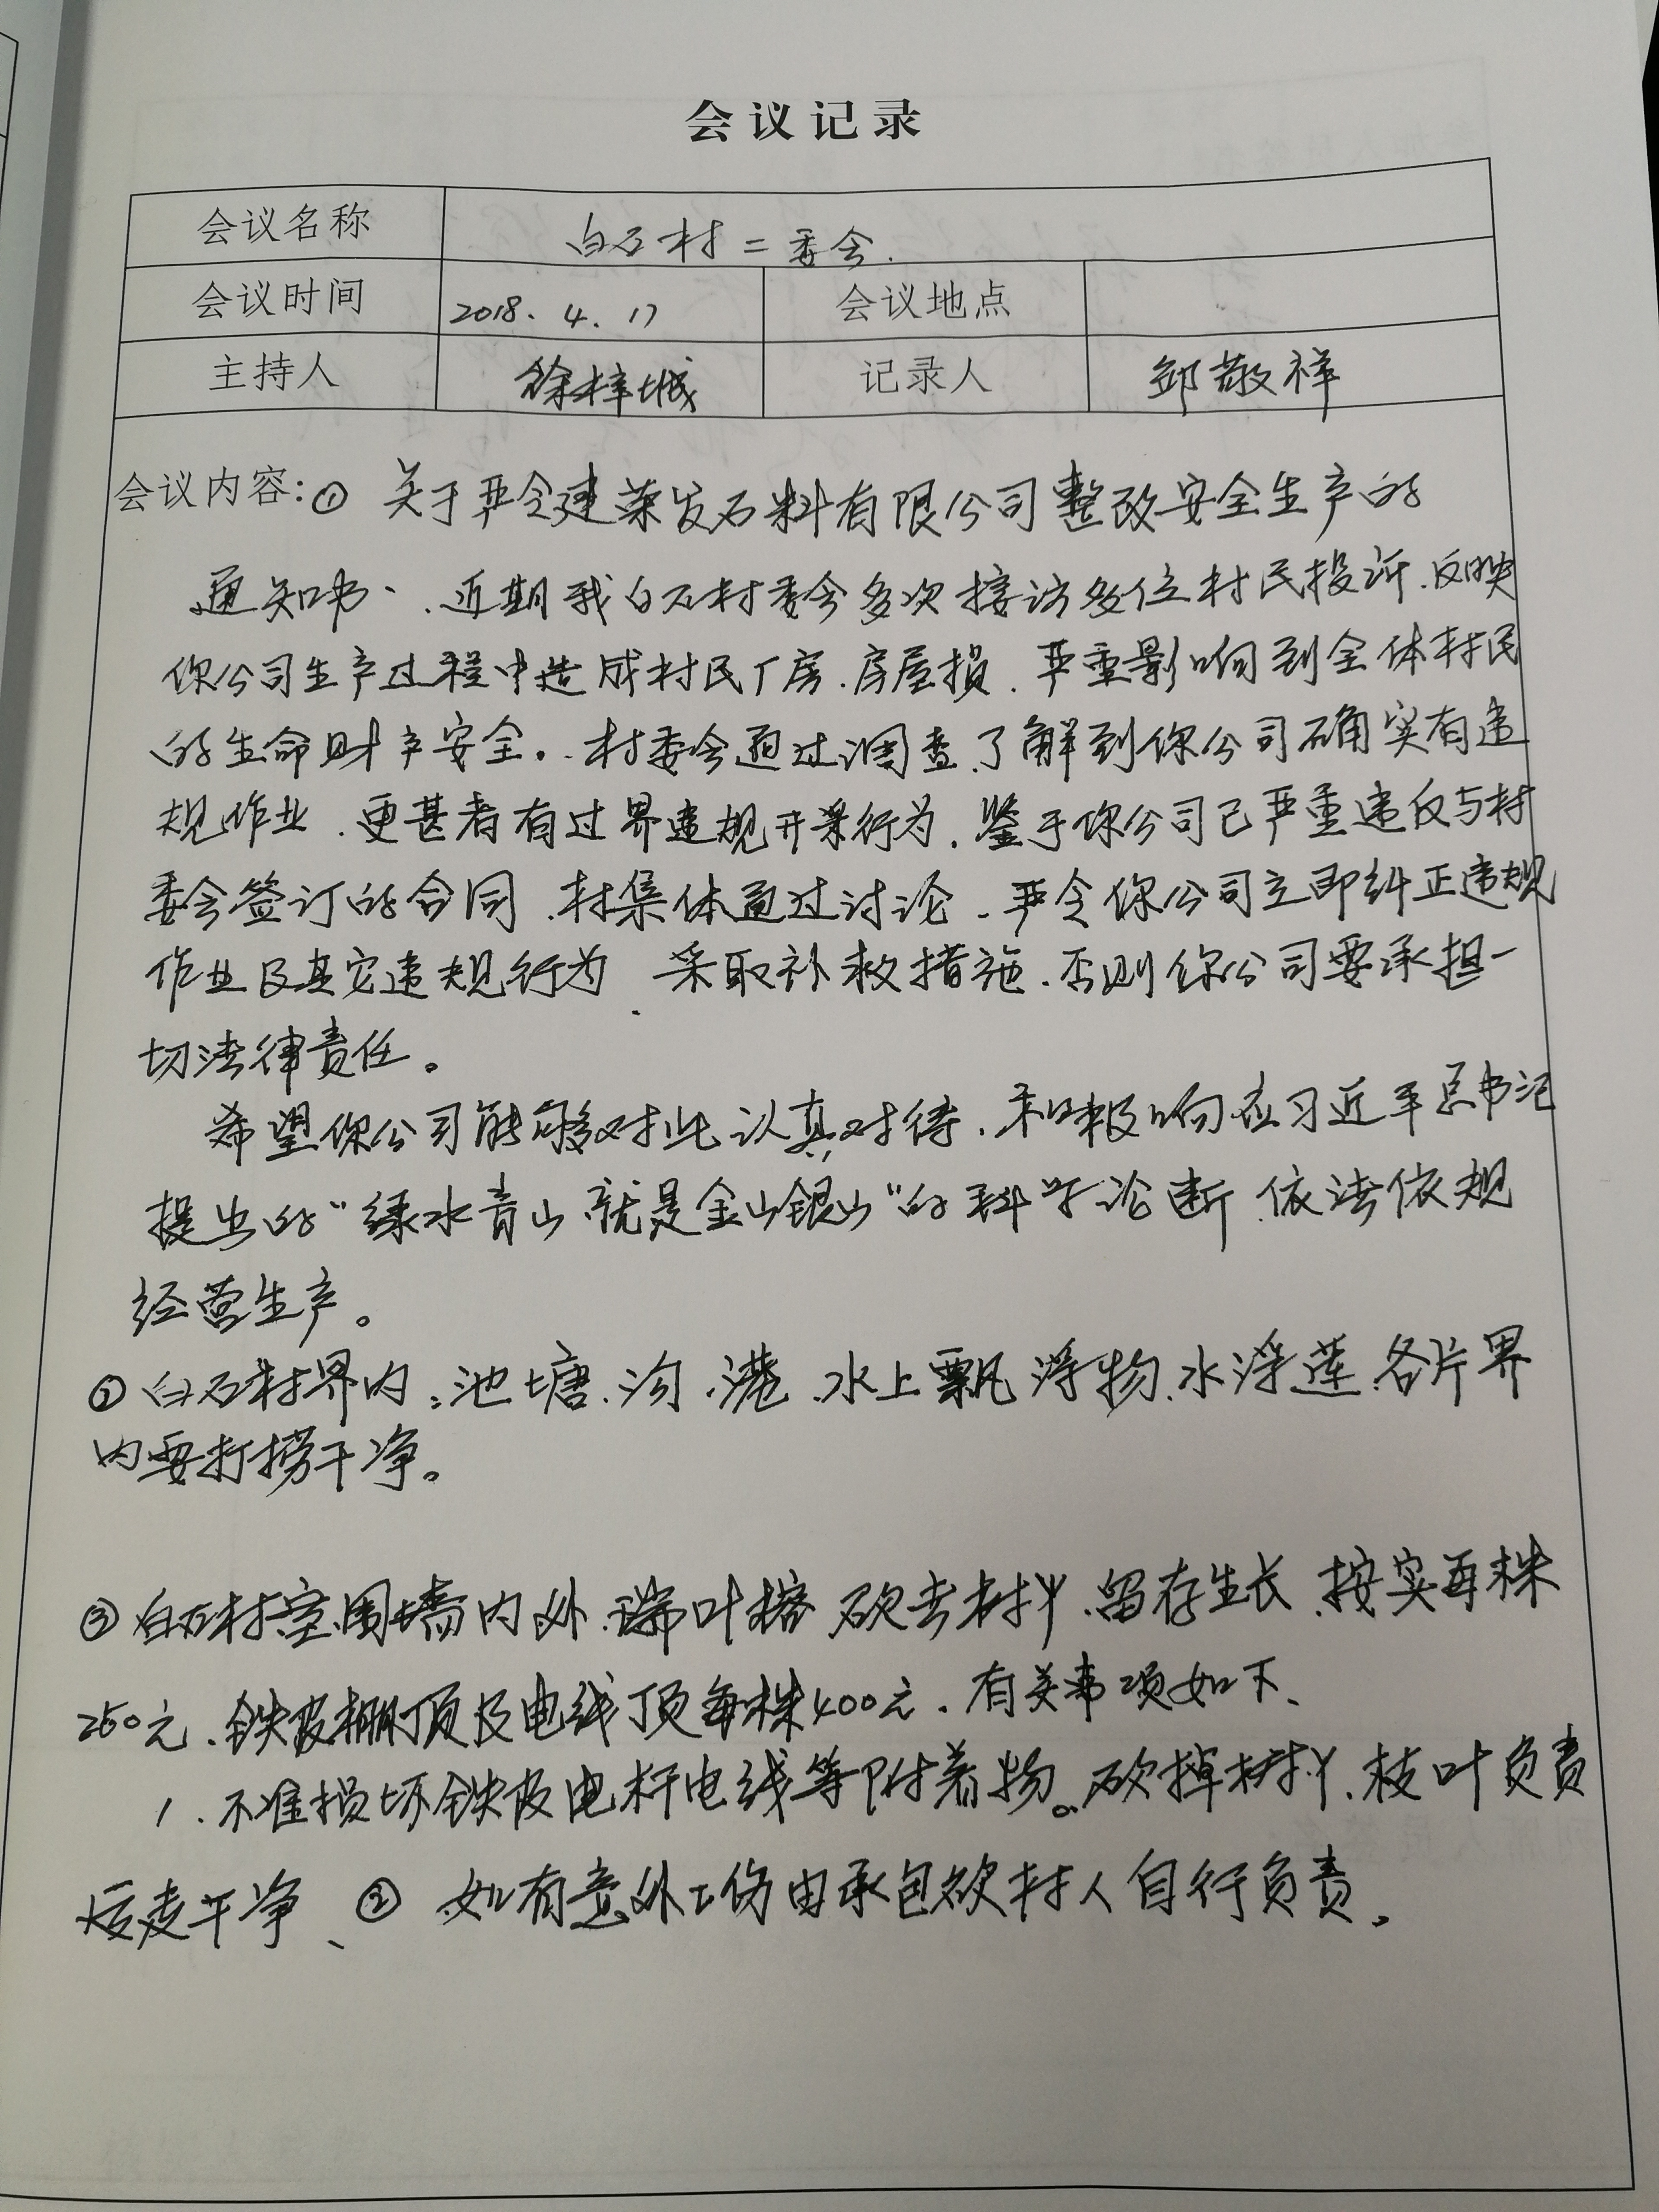 会议记录
会议名称 白石村二委会.
会议时间 2018.4.17 会议地点
主持人 徐梓城 记录人 邹敬祥
会议内容:① 关于严令建荣发石料有限公司整改安全生产的
通知书、.近期我白石村委会多次接访多位村民投诉.反映
你公司生产过程中造成村民厂房.房屋损.严重影响到全体村民
的生命财产安全。.村委会通过调查.了解到你公司确实有违
规作业.更甚者有过界违规开采行为.鉴于你公司已严重违反与村
委会签订的合同.村集体通过讨论.严令你公司立即纠正违规
作业及其它违规行为.采取补救措施.否则你公司要承担一
切法律责任。
希望你公司能够对此认真对待.积极响应习近平总书记
提出的“绿水青山.就是金山银山”的科学论断.依法依规
经营生产。
② 白石村界内:池塘.沟.港.水上飘浮物.水浮莲.各片界
内要打捞干净。
③ 白石村室围墙内外.瑞叶榕砍去树丫.留存生长.按实每株
250元.铁皮棚顶及电线顶每株400元.有关事项如下、
1.不准损坏铁皮电杆电线等附着物。砍掉树丫.枝叶负责
运走干净、② 如有意外工伤由承包砍树人自行负责.